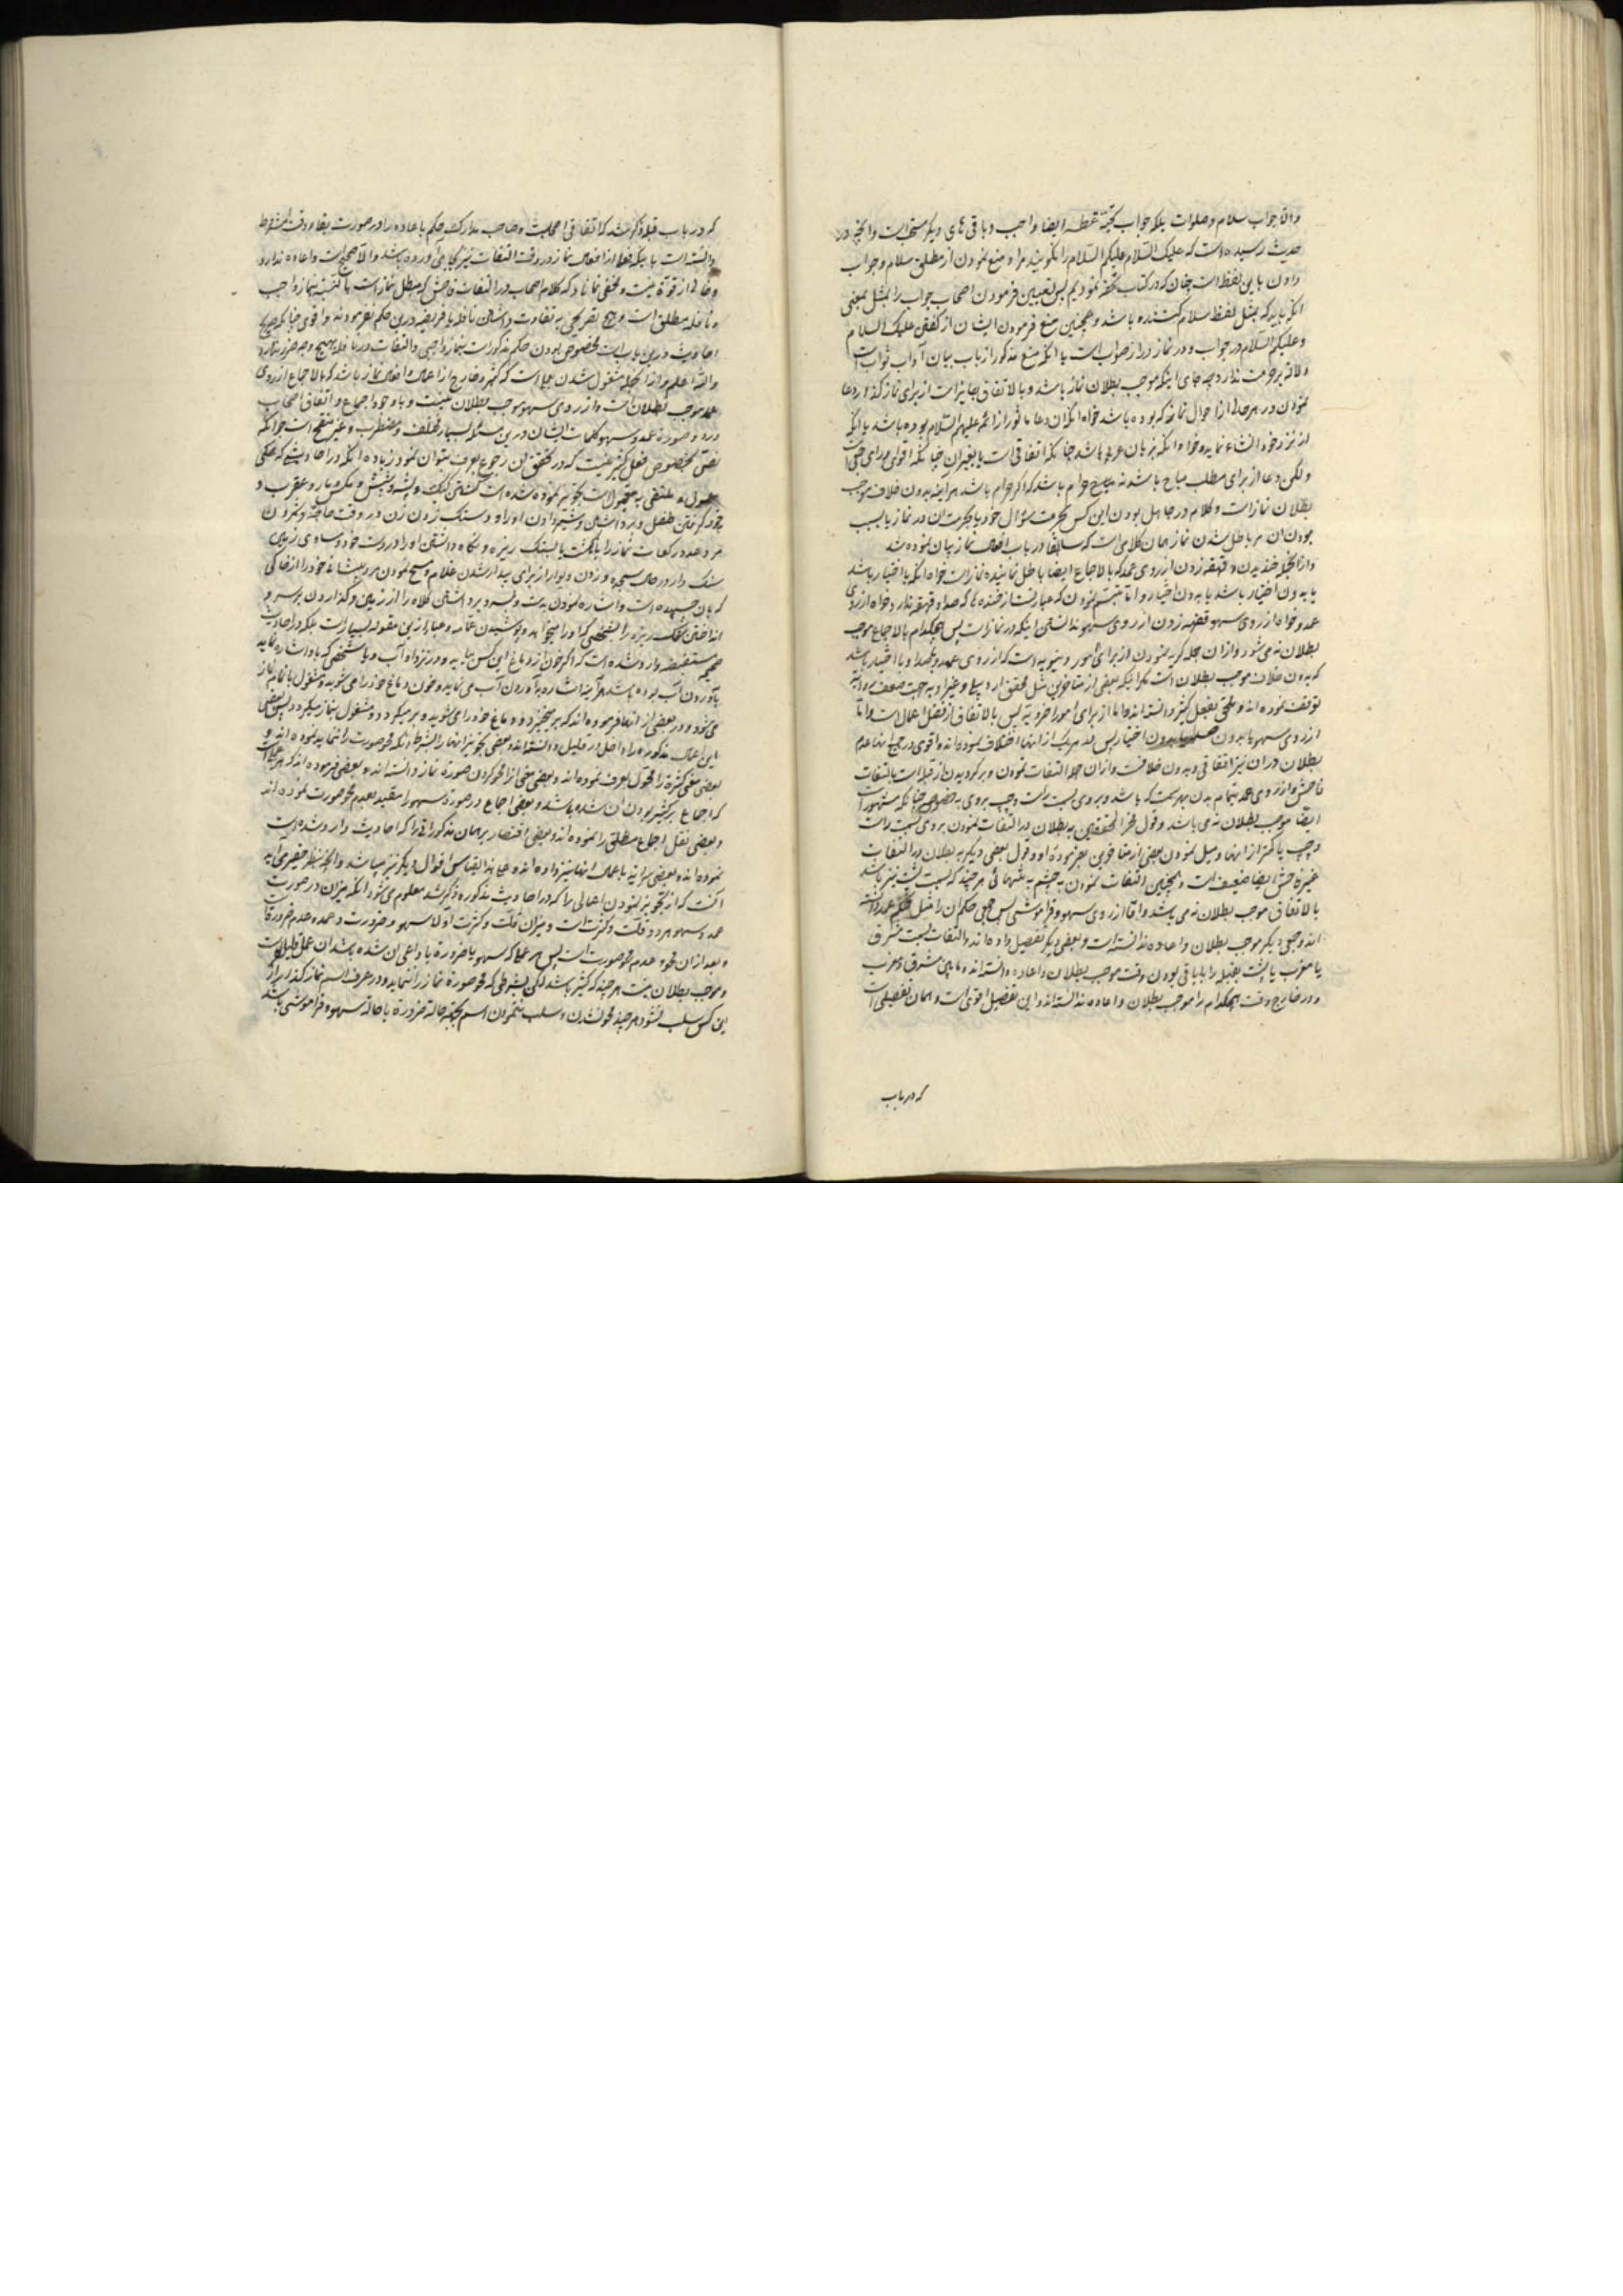 واما جواب سلام و صلوات بلکه جواب تحیّة عطسه ایضا واجب و باقی های دیگر مستحب است و آنچه در
حدیث رسیده است که علیک السّلام علیکم السّلام را نگویند مراد منع نمودن از مطلق سلام و جواب
دادن باین لفظ است چنان که در کتاب تحفه نمودیم پس تعیین فرمودن اصحاب جواب را بمثل بمعنی
آنکه باید که بمثل لفظ سلام کننده باشد و همچنین منع فرمودن ایشان از گفتن علیک السلام
و علیکم السّلام در جواب و در نماز دور از صواب است یا آنکه منع مذکور از باب بیان آداب ثواب است
و دلالة بر حرمت ندارد چه جای اینکه موجب بطلان نماز باشد و بالاتفاق جایز است از برای نماز گذار دعا
نمودن در هر حالی از احوال نماز که بوده باشد خواه آنکه آن دعا ماثور از ائمه علیهم السّلام بوده باشد یا آنکه
از نزد خود انشاء نماید و خواه آنکه بزبان عربی باشد چنانکه اتفاقی است یا بغیر آن چنانکه اقوی
ولکن دعا از برای مطلب مباح باشد نه حرام باشد که اگر حرام باشد هر آینه بدون خلاف موجب
بطلان نماز است و کلام در جاهل بودن این کس بحرمت سؤال خود یا بحرمت آن در نماز یا بسبب
بودن آن مر باطل شدن نماز همان کلامی است که سابقا در باب افعال نماز بیان نموده شد
و از آنجمله خندیدن و قهقهه زدن از روی عمد که بالاجماع ایضا باطل نماینده نماز است خواه آنکه با اختیار باشد
یا بدون اختیار باشد یا بدون اختیار و اما تبسّم نمودن که عبارتست از خنده که صدا و قهقهه ندارد خواه از روی
عمد و خواه از روی سهو و قهقهه زدن از روی سهو ندانستن اینکه در نماز است پس هیچکدام بالاجماع موجب
بطلان نمی شود و از آن جمله گریه نمودن از برای امور دنیویه است که از روی عمد و با اختیار باشد
که بدون خلاف موجب بطلان است مگر اینکه بعضی از متاخرین مثل محقق اردبیلی و غیر او بجهت ضعف روایة
توقف نموده اند و ملحق بفعل کثیر دانسته اند و اما از برای امور اخرویه پس بالاتفاق از افضل اعمال است و اما
از روی سهو یا بدون اختیار پس در هر یک از آنها اختلاف نموده اند و اقوی در جمیع آنها عدم
بطلان و در آن نیز اتفاقی و بدون خلافست و از آن جمله التفات نمودن و برگردیدن از قبله است بالتفات
فاحش و از روی عمد بتمام بدن بهر سمت که باشد و بروی بسمت راست و چپ بروی بخصوص چنانکه مشهور است
ایضا موجب بطلان نمی باشد و قول فخر المحققین به بطلان در التفات نمودن بروی بسمت راست
و چپ یا کمتر از آنها و میل نمودن بعضی از متاخرین بفرموده او و قول بعضی دیگر به بطلان در التفات
غیر فاحش ایضا ضعیف است و همچنین التفات نمودن به چشم به تنهائی هر چند که بسمت پشت نیز باشد
بالاتفاق موجب بطلان نمی باشد و اما از روی سهو و فراموشی پس جمعی حکم آن را مثل حکم عمد دانسته
اند و جمعی دیگر موجب بطلان و اعاده ندانسته است و بعضی دیگر تفصیل داده اند و التفات بسمت مشرق
یا مغرب یا پشت بقبله را با باقی بودن وقت موجب بطلان و اعاده دانسته اند و مابین مشرق و مغرب
و در خارج وقت هیچکدام را موجب بطلان و اعاده ندانسته اند و این تفصیل اقوی است و همان تفصیلی است
که در باب
که در باب قبله ذکر شد که اتفاقی امامیه است و صاحب مدارک حکم باعاده را در صورت بقاء وقت مشروط
دانسته است باینکه فعلی از افعال نماز در وقت التفات نیز بجا آورده باشد و الا صحیح است و اعاده ندارد
و خالی از قوة نیست و مخفی نماناد که کلام اصحاب در التفات فاحش که مبطل نماز است بالنسبة بنماز واجب
و نافله مطلق است و هیچ تصریحی به تفاوت داشتن نافله با فریضه در این حکم نفرموده اند و اقوی چنانکه صریح
احادیث در این باب است مخصوص بودن حکم مذکور است بنماز واجبی و التفات در نافله بهیچ وجه ضرر ندارد
والله اعلم و از آنجمله مشغول شدن بعملی است که کثیر و خارج از اعمال و افعال نماز باشد که بالاجماع از روی
عمد موجب بطلان است و از روی سهو موجب بطلان نیست و با وجود اجماع و اتفاق اصحاب
در دو صورة عمد و سهو کلمات ایشان در این مسئله بسیار مختلف و مضطرب و غیر منقح است
نصّی بخصوص فعل کثیر نیست که در تحقق آن رجوع بعرف بتوان نمود زیاده آنکه در احادیثی که همگی
تجویز نموده شده است کشتن کیک و پشه و شپش و مگس و مار و عقرب و
خود گرفتن طفل و برداشتن و شیر دادن او را و دستک زدن زن در وقت حاجة و شمردن
مرد عدد رکعات نماز را بانگشت یا بسنگ ریزه و نگاه داشتن او را در دست خود و مساوی
سنگ دار در حال سجده و زدن دیوار از برای بیدار شدن غلام و مسح نمودن مرد پیشانی خود را از خاکی
که بآن چسبیده است و اشاره نمودن بدست و بسر و برداشتن کلاه را از زمین و گذاردن بر سر و
انداختن سنگ ریزه را بشخصی که او را میخواهد و پوشیدن عمامه و عبا و از این مقوله بسیار است بلکه در احادیث
صحیح مستفیضه وارد شده است که اگر خون از دماغ این کس بیاید و در نزد او آب و یا شخصی که باو اشاره نماید
بآوردن آب بوده باشد هر آینه اشاره بآوردن آب می نماید و خون دماغ خود را می شوید و مشغول باتمام نماز
می شود و در بعضی از آنها فرموده اند که بر میخیزد و دماغ خود را می شوید و بر میگردد و مشغول بنماز میگردد پس بعضی
این اعمال مذکوره را داخل در قلیل دانسته اند و بعضی تجویز آنها را بشرط آنکه محو صورت را ننماید نموده اند و
بعضی معنی کثرة را محوّل بعرف نموده اند و بعضی معنی آنرا محو کردن صورة نماز دانسته اند و بعضی فرموده اند که هر عملی است
که اجماع بر کثیر بودن آن شده باشد و بعضی اجماع در صورة سهو را مقید بعدم محو صورت نموده اند
و بعضی نقل اجماع مطلق را نموده اند و بعضی اقتصار بر همان مذکورات را که احادیث وارد شده است
نموده اند و بعضی سرایة باعمال آنها نیز داده اند و در میانه ایضا اقوال دیگر نیز میباشد و آنچه بنظر حقیر می آید
آنست که از تجویز نمودن اعمالی را که در احادیث مذکوره ذکر شد معلوم می شود آنکه میزان در صورت
عمد و سهو هر دو قلّت و کثرت است و میزان قلّت و کثرت اولا سهو و ضرورت و عمد و عدم ضرورة
و بعد از آن محو و عدم محو صورت است پس هر عملی که سهو یا ضرورة یا داعی آن شده باشد آن عمل قلیل است
و موجب بطلان نیست هر چند که کثیر باشد لکن بشرطی که محو صورة نماز را ننماید و در عرف اسم نماز گذار از
این کس سلب نشود هر چند محو نشدن و سلب ننمودن اسم بجهة حالة ضرورة یا حالة سهو و فراموشی باشد